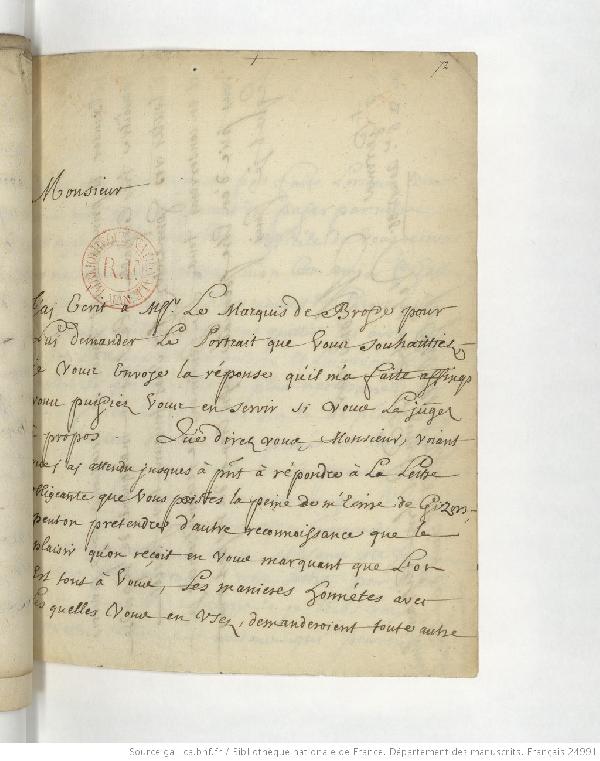 72
Monsieur
BIBLIOTHEQUE NATIONALE
R.F.
MSS
J'ai Ecrit à Mr. Le Marquis de Brosse pour
Lui demander Le Portrait que Vous souhaittiez
Je Vous Envoye la réponse qu'il m'a faite affinq
vous puissiez Vous en servir si Vous Le jugez
à propos. Què direz vous, Monsieur, voiant
que j'ai attendu jusques à pnt à répondre à La Lettre
obligeante que Vous pristes la peine de m'Ecrire de Gizors,
peut on pretendre d'autre reconnoissance que le
plaisir qu'on reçoit en Vous marquant que L'on
Est tout à Vous, Les manieres honnétes avec
Les quelles Vous en Usez, demanderoient toute autre
Source gallica.bnf.fr / Bibliothèque nationale de France. Département des manuscrits. Français 24991